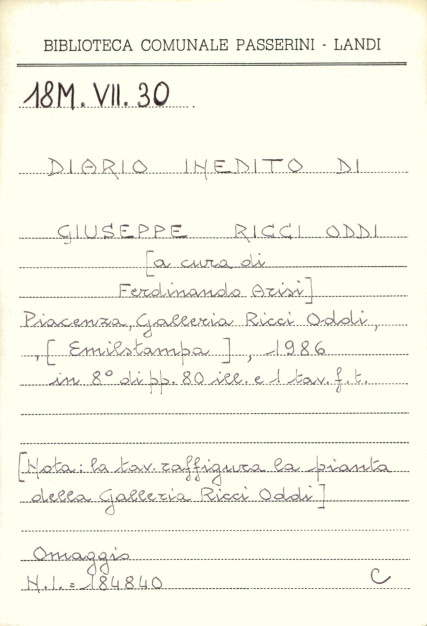 BIBLIOTECA COMUNALE PASSERINI - LANDI
18M. VII. 30
DIARIO INEDITO DI
GIUSEPPE RICCI ODDI
[a cura di
Ferdinando Arisi]
Piacenza, Galleria Ricci Oddi,
, [Emilstampa], 1986
in 8° di pp. 80 ill. e 1 tav. f. t.
[Nota: la tav. raffigura la pianta
della Galleria Ricci Oddi]
Omaggio
N.I. = 184840
C